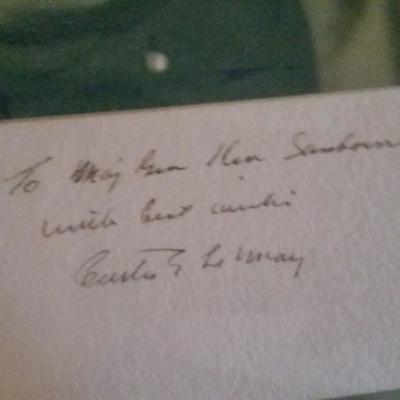 To Maj Gen Ken Sanborn
with best wishes
Curtis E LeMay